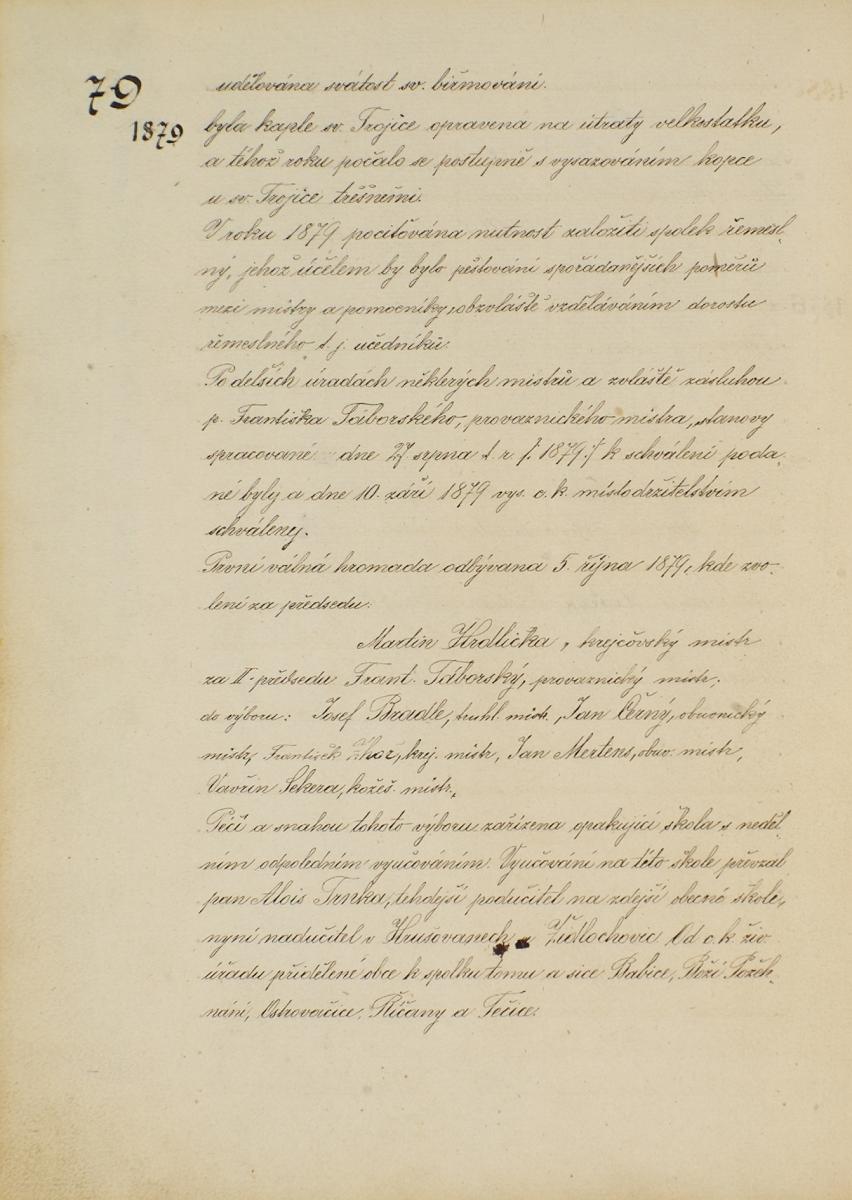 79
udělována svátost sv. biřmování.
1879
byla kaple sv. Trojice opravena na útraty velkostatku,
a téhož roku počalo se postupně s vysazováním kopce
u sv. Trojice třešněmi.
V roku 1879 pociťována nutnost založiti spolek řemesl-
ný, jehož účelem by bylo pěstování spořádanějších poměrů
mezi mistry a pomocníky, obzvláště vzděláváním dorostu
řemeslného t. j. učedníků.
Po delších úradách některých mistrů a zvláště zásluhou
p. Františka Táborského, provaznického mistra, stanovy
spracované dne 27 srpna t. r. /: 1879 :/ k schválení poda-
né byly a dne 10. září 1879 vys. c. k. místodržitelstvím
schváleny.
První válná hromada odbývana 5. října 1879, kde zvo-
leni za předsedu:
Martin Hrdlička, krejčovský mistr
za II předsedu Frant. Táborský, provaznický mistr;
do výboru: Josef Bradle, truhl. mistr, Jan Černý, obuvnický
mistr, František krej. mistr, Jan Mertens, obuv. mistr,
Vavřin Sekera, kožeš. mistr.
Péčí a snahou tohoto výboru zařízena opakující škola s neděl-
ním odpoledním vyučováním. Vyučování na této škole převzal
pan Alois Trnka, tehdejší podučitel na zdejší obecné škole,
nyní nadučitel v Hrušovanech u Židlochovic Od c. k. živ.
úřadu přidělené obce k spolku tomu a sice Babice, Boží Požeh-
nání, Ostrovačice, Říčany a Tečice.